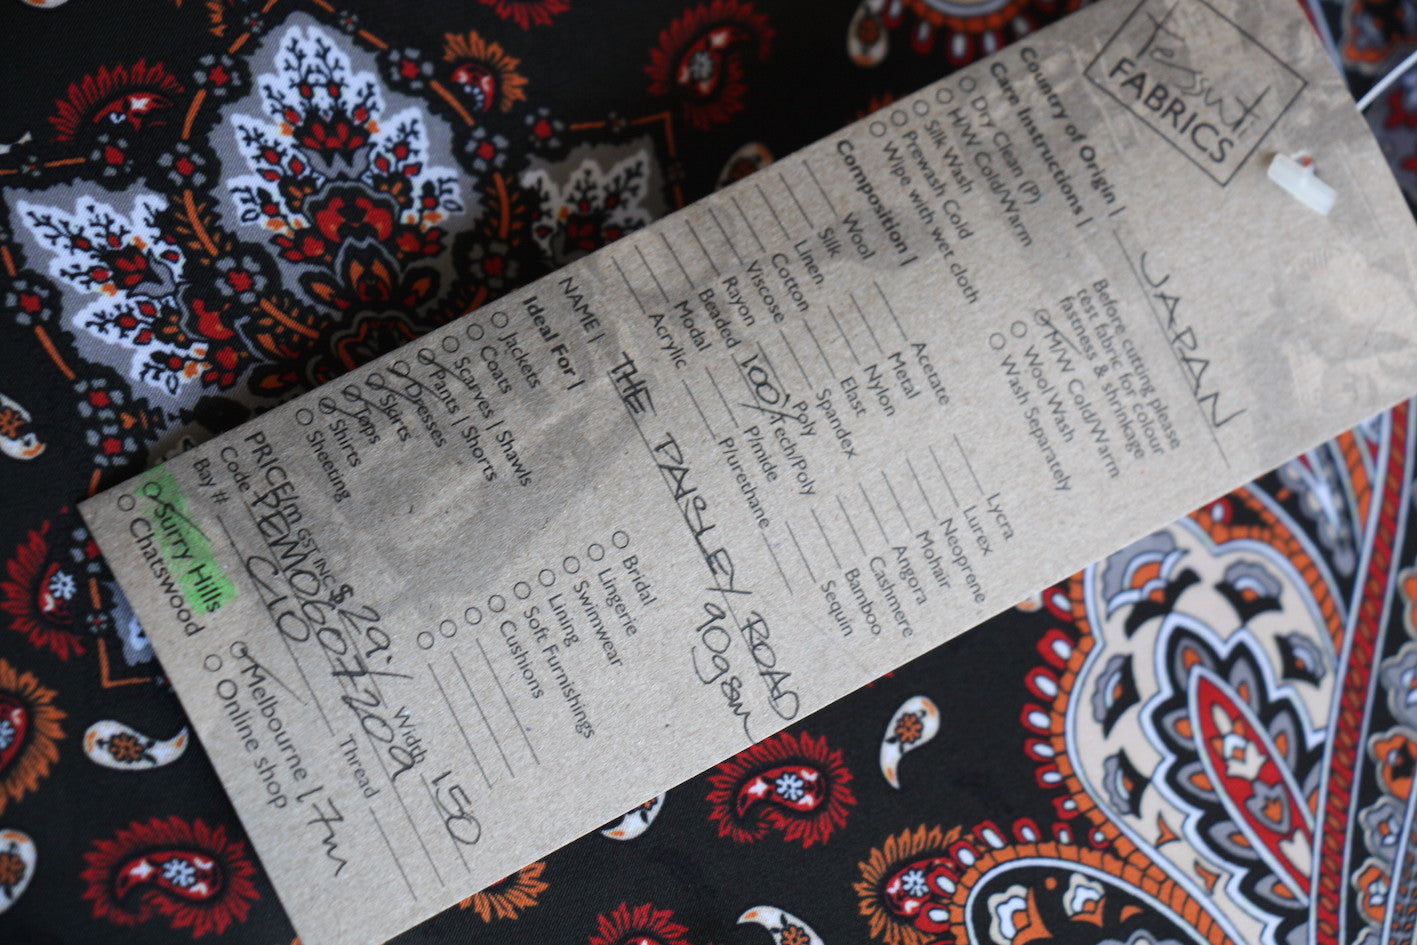 Tessuti
FABRICS
Country of Origin | JAPAN
Care Instructions |
Dry Clean (P)
H/W Cold/Warm
Silk Wash
Prewash Cold
Wipe with wet cloth
Before cutting please
test fabric for colour
fastness & shrinkage
M/W Cold/Warm
Wool Wash
Wash Separately
Composition |
Wool
Silk
Linen
Cotton
Viscose
Rayon
Beaded
Modal
Acrylic
Acetate
Metal
Nylon
Elast
Spandex
100% Poly
Tech/Poly
P/mide
P/urethane
Lycra
Lurex
Neoprene
Mohair
Angora
Cashmere
Bamboo
Sequin
NAME | THE PAISLEY ROAD
90gsm
Ideal For |
Jackets
Coats
Scarves | Shawls
Pants | Shorts
Dresses
Skirts
Tops
Shirts
Sheeting
Bridal
Lingerie
Swimwear
Lining
Soft Furnishings
Cushions
PRICE/m GST INC $29.- Width 150
Code
Bay # C10 Thread
Surry Hills
Chatswood
Melbourne 17m
Online shop